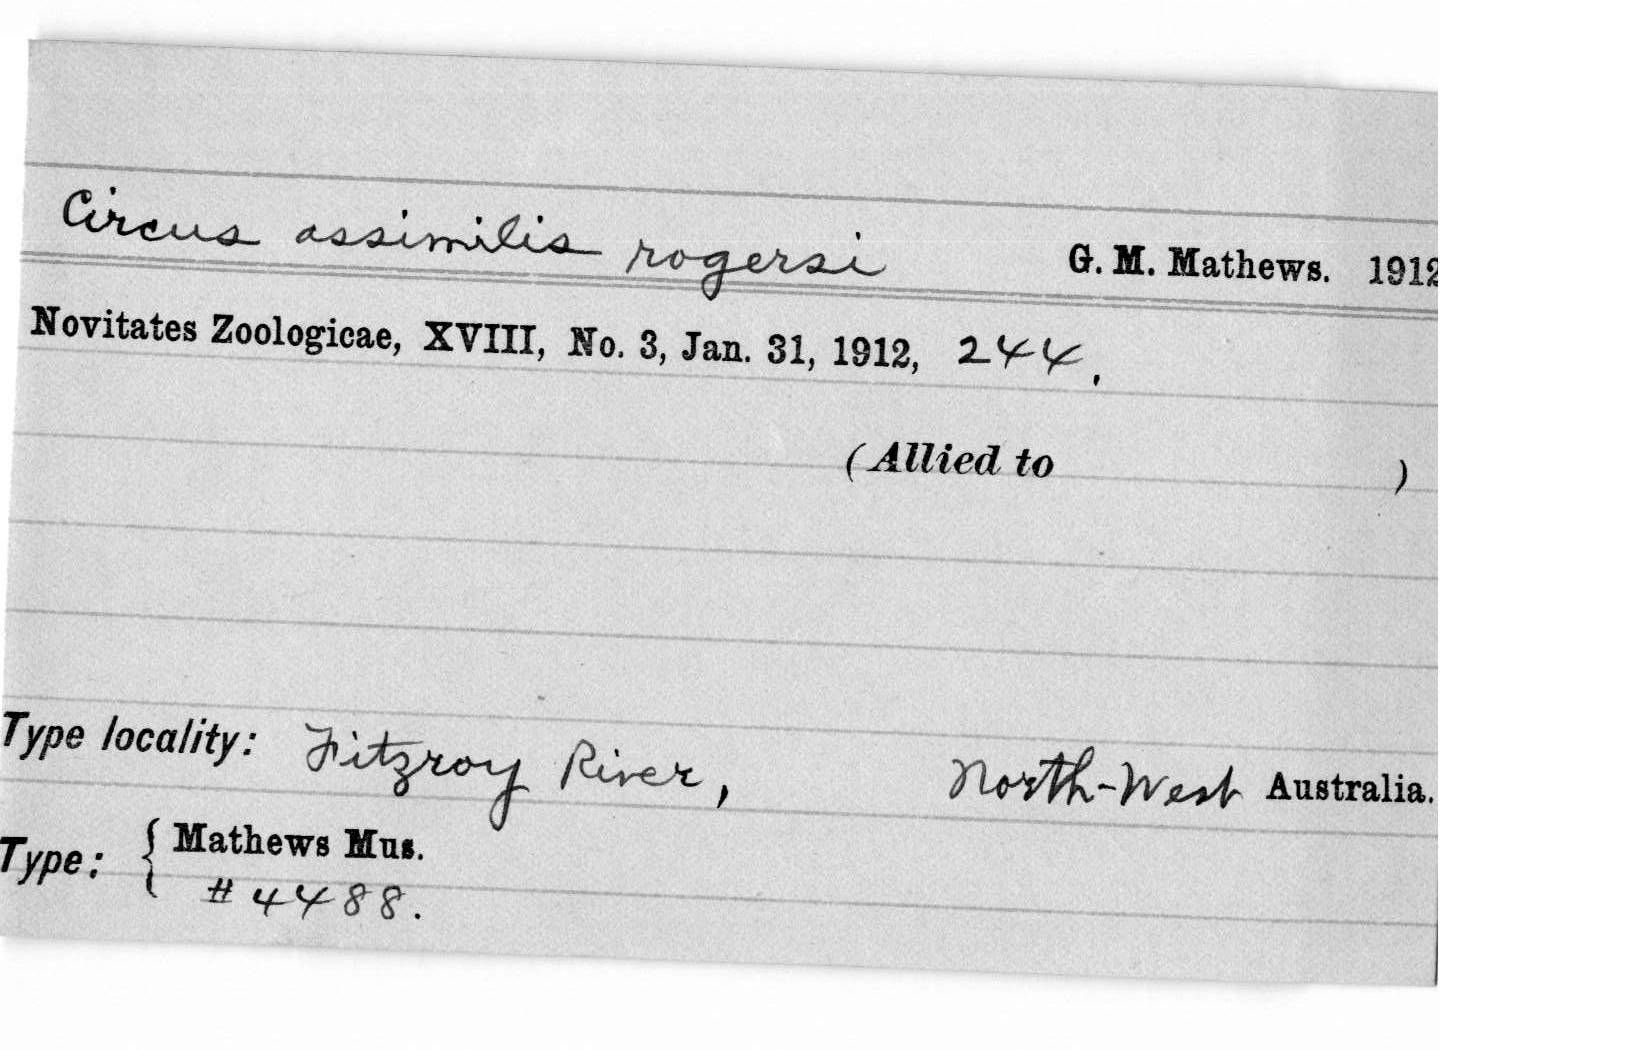 Circus assimilis rogersi G. M. Mathews. 1912
Novitates Zoologicae, XVIII, No. 3, Jan. 31, 1912, 244.
(Allied to )
Type locality: Fitzroy River, North-West Australia.
Type: { Mathews Mus.
# 4488.